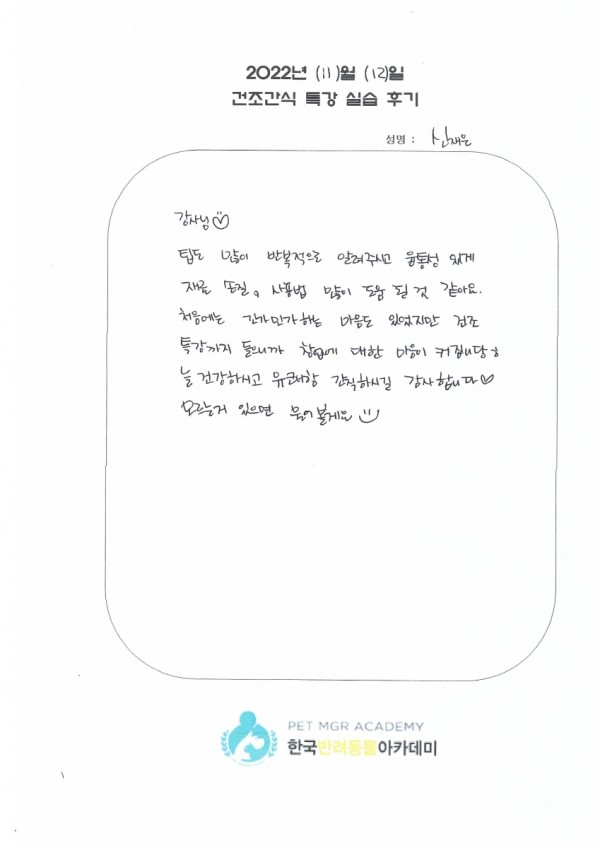 2022년 (11)월 (12)일
건조간식 특강 실습 후기
성명 : 신재은
강사님
팁도 많이 반복적으로 알려주시고 융통성 있게
재료 손질, 사용법 많이 도움 될 것 같아요.
처음에는 긴가민가하는 마음도 있었지만 건조
특강까지 들으니까 창업에 대한 마음이 커집니당ㅎ
늘 건강하시고 유쾌함 간직하시길 감사합니다
모르는거 있으면 물어볼게요
PET MGR ACADEMY
한국반려동물아카데미